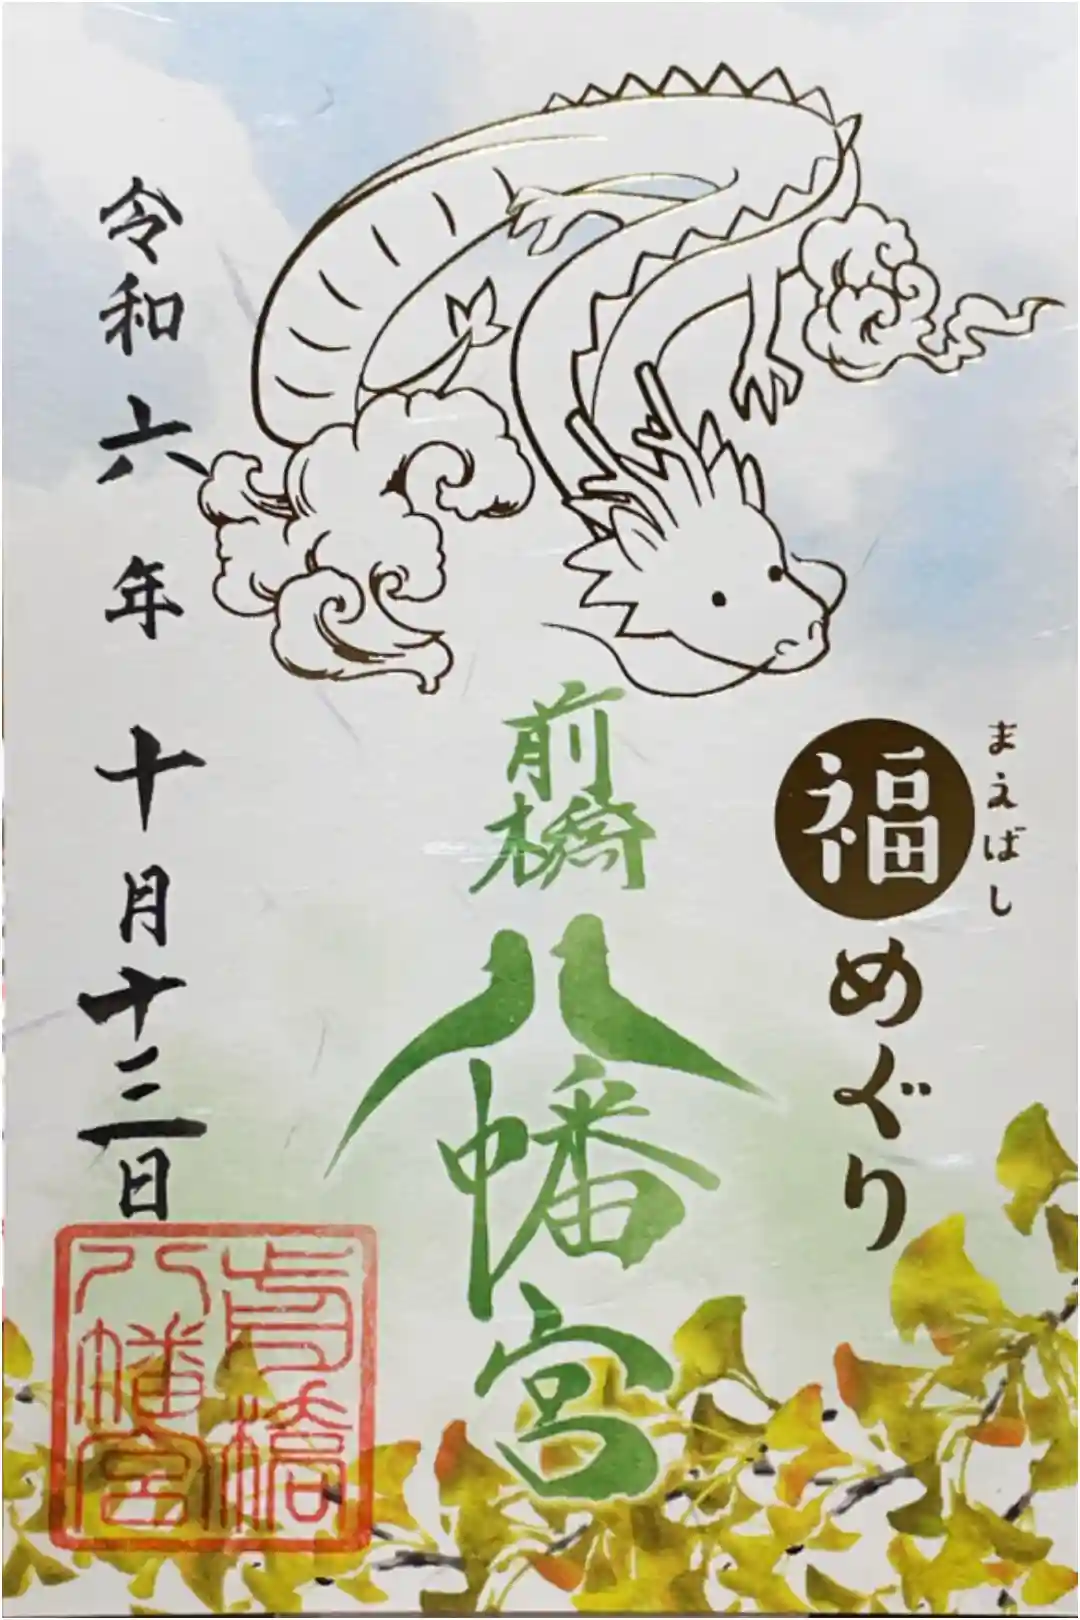 まえばし
福めぐり
前橋
八幡宮
令和六年十月十三日
前橋
八幡宮